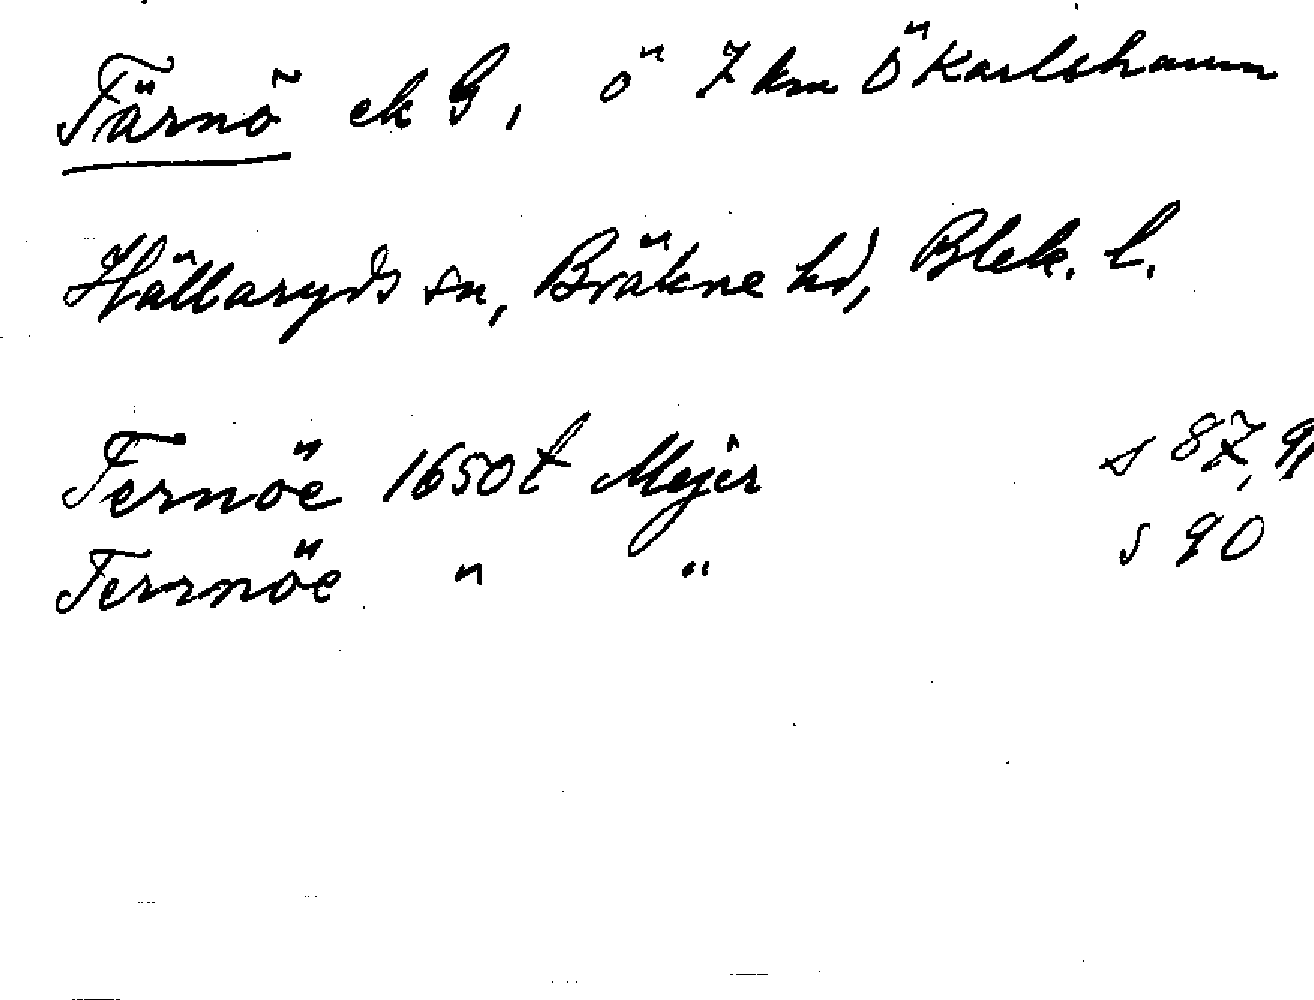 Tärnö ek G, ö 7 km Ö Karlshamn
Hällaryds sn, Bräkne hd, Blek. l.
Fernöe 1650t Mejer s 87, 91
Ferrnöe " " s 90